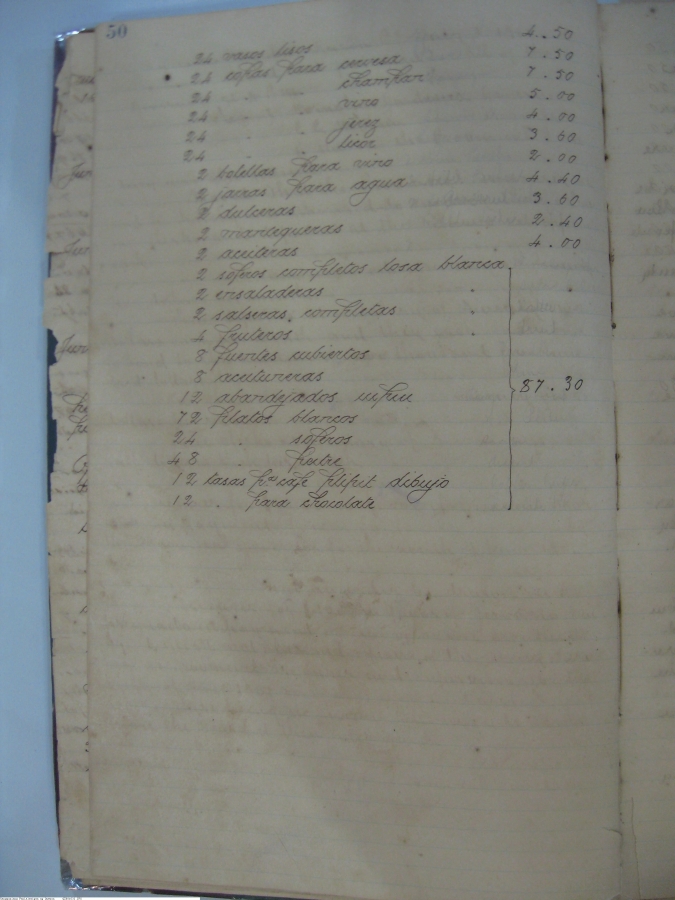 50
24 vasos lisos 4.50
24 copas para cerveza 7.50
24 " " champan 7.50
24 " " vino 5.00
24 " " jerez 4.00
24 " " licor 3.60
2 botellas para vino 2.00
2 jarras para agua 4.40
2 dulceras 3.60
2 mantequeras 2.40
2 aceiteras 4.00
2 soperos completos losa blanca
2 ensaladeras "
2 salseras completas "
4 fruteros "
8 fuentes cubiertos
8 aceituneras
12 abandejados 87.30
72 platos blancos
24 " soperos
48 " postre
12 tasas pra cafe dibujo
12 " para chocolate